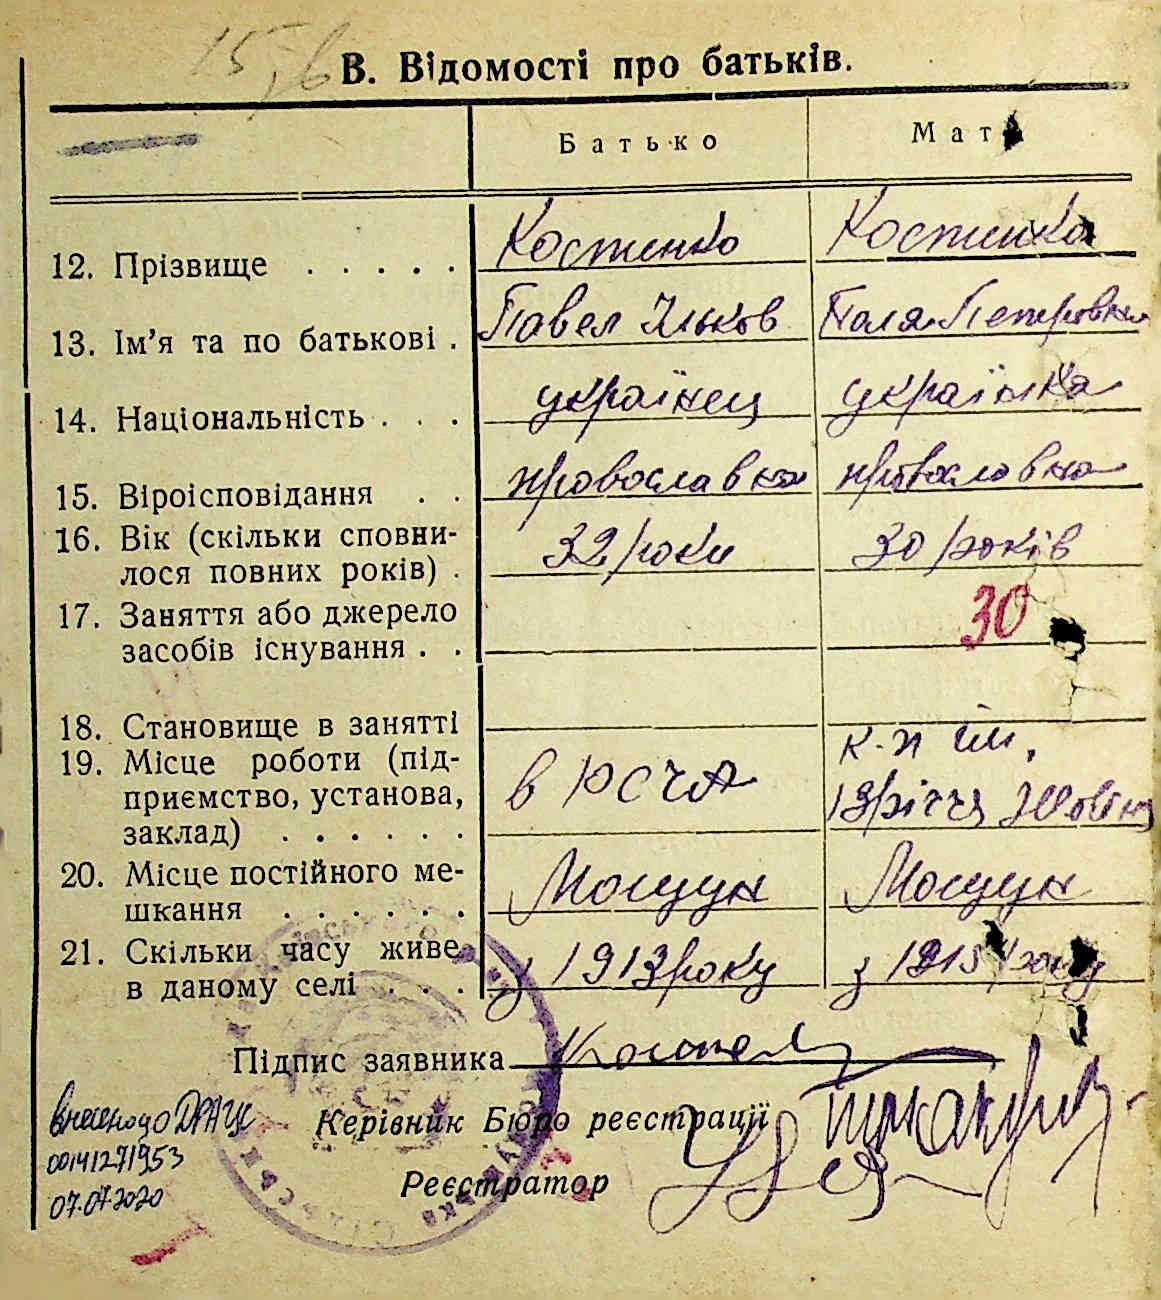 15,6
В. Відомості про батьків.
Батько Мати
12. Прізвище . . . . . Костенко Костенко
13. Ім'я та по батькові . Павел Ільков Поля Петровна
14. Національність . . . українец українка
15. Віроісповідання . . провославна провославна
16. Вік (скільки сповни-
лося повних років) . 32 роки 30 років
17. Заняття або джерело
засобів існування . . 30
18. Становище в занятті
19. Місце роботи (під-
приємство, установа,
заклад) . . . . . . в РСЧА к-п ім,
13 річчя Жовтн
20. Місце постійного ме-
шкання . . . . . . Мощун Мощун
21. Скільки часу живе
в даному селі . . . . з 1913 року з 1915 року
Підпис заявника
Керівник Бюро реєстрації
Реєстратор
внесено до ДРАЦС
00141271953
07.07.2020